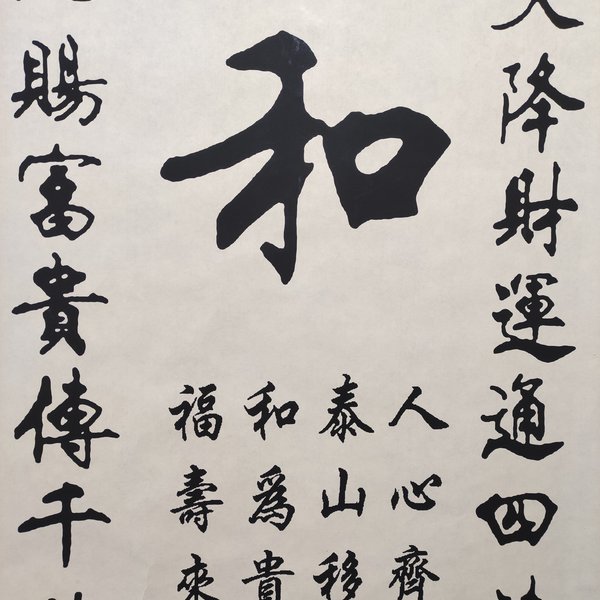 天降財運通四
和
人心齊
泰山移
和為貴
福壽來
賜富貴傳千